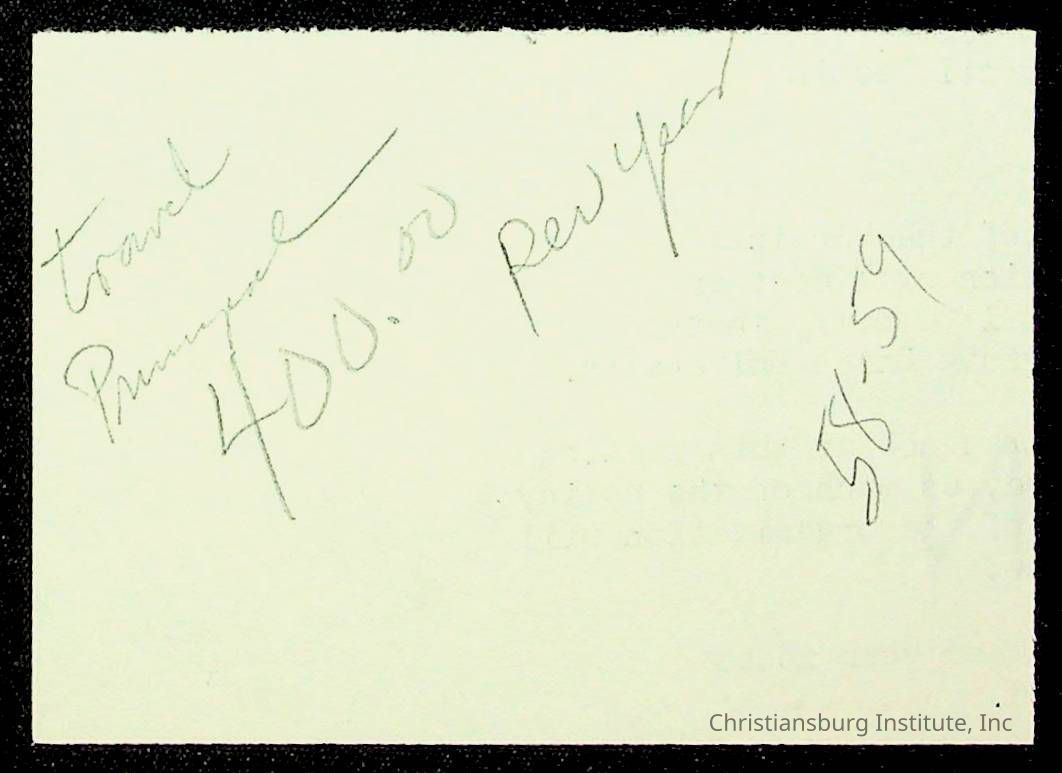 travel
Principal
400.00 per year
58-59
Christiansburg Institute, Inc